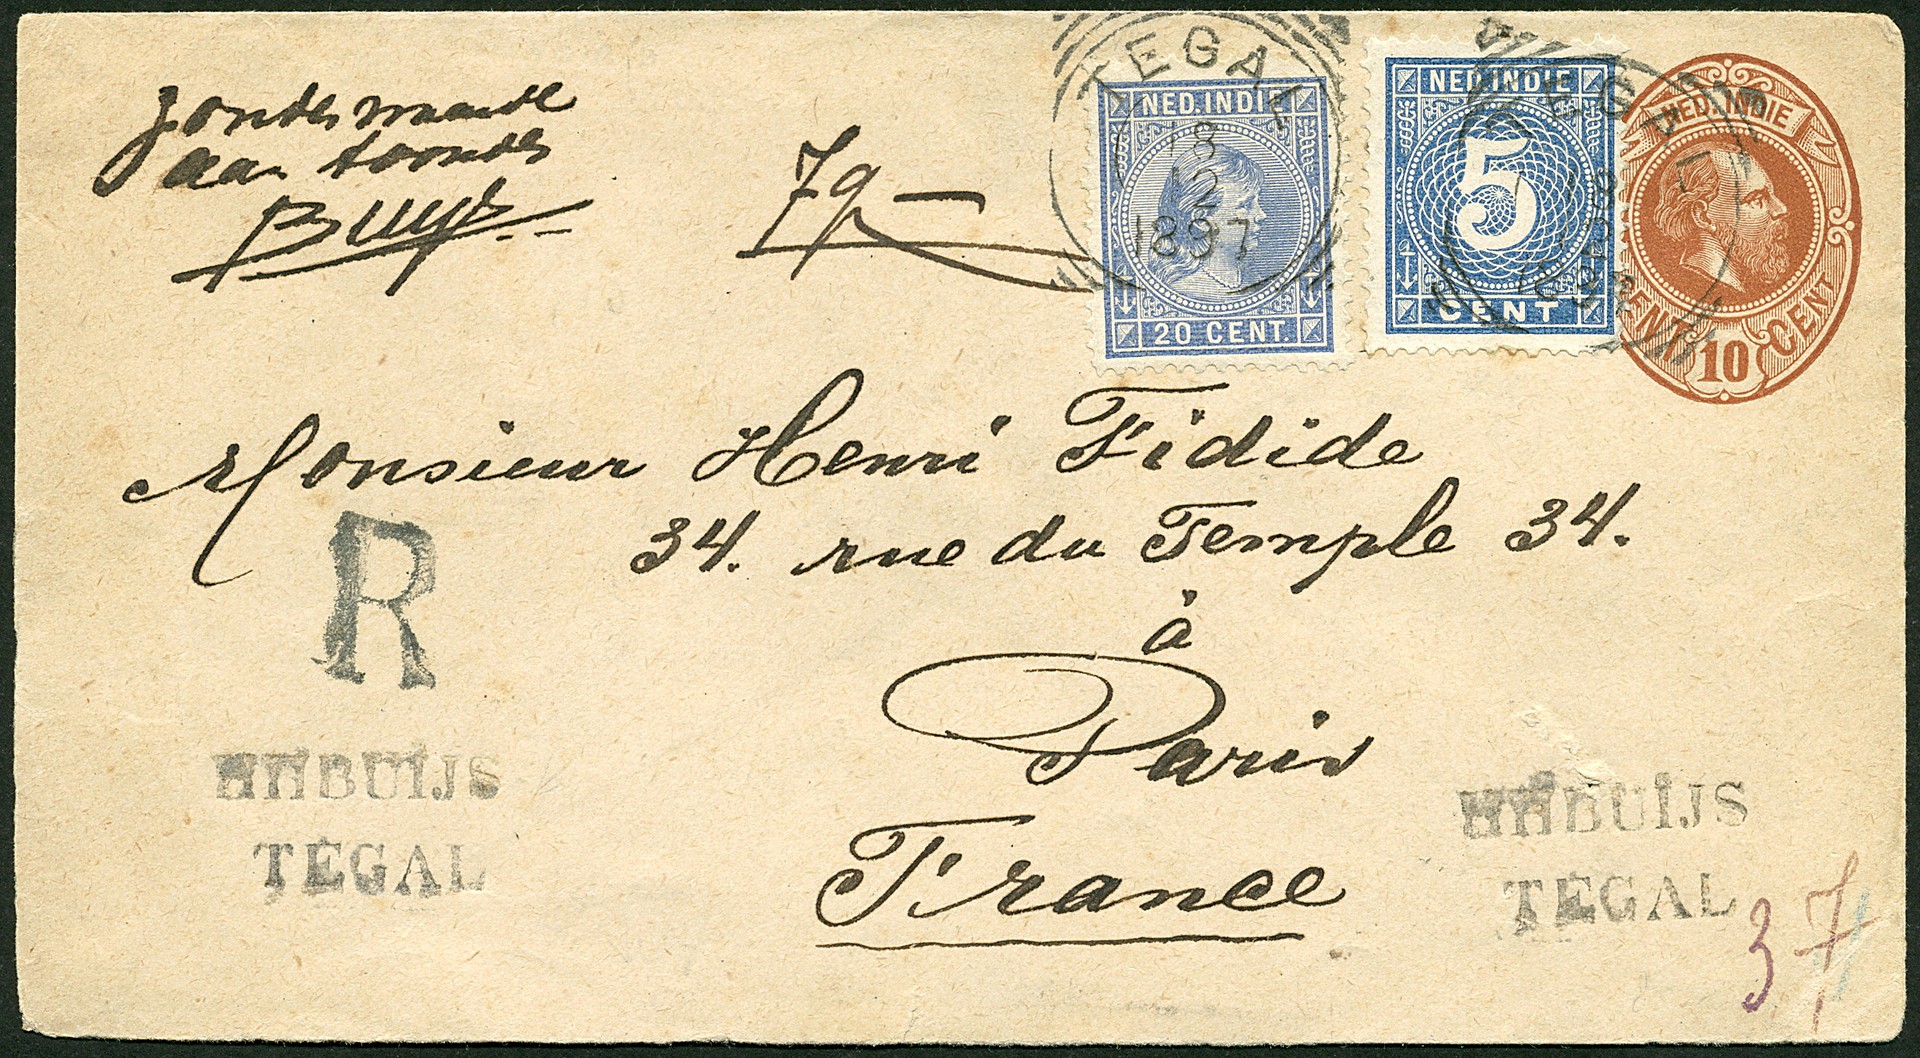 zonder waarde
aan toonder
Buijs
79
TEGAL
18
12
1897
NED.INDIE
20 CENT.
NED.INDIE
5
CENT
NED. INDIE
10
CENT
Monsieur Henri Fidide
34. rue du Temple 34.
à
Paris
France
R
HHBUIJS
TEGAL
HHBUIJS
TEGAL
3 7